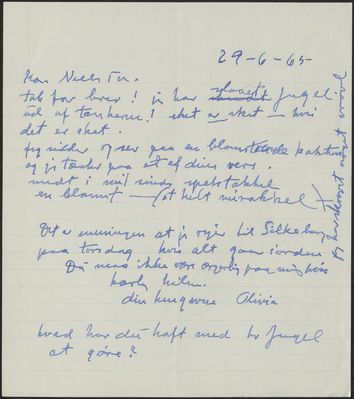 29-6-65
Kære Niels Jør.
tak for brev! jeg har slaaet fugel
ud af tankerne! sket er sket – hvis
det er sket.
Jeg sidder og ser paa en blomstrende kaktus
og jeg tænker paa et af dine vers.
midt i mit sinds spektakkel
en blomst – et helt mirakkel
Det er meningen at jeg rejser til Silkeborg
paa torsdag hvis alt gaar i orden
Du maa ikke være
kærlig hilsen.
din hengivne Olivia
hvad har du haft med hr fugel
at gøre?